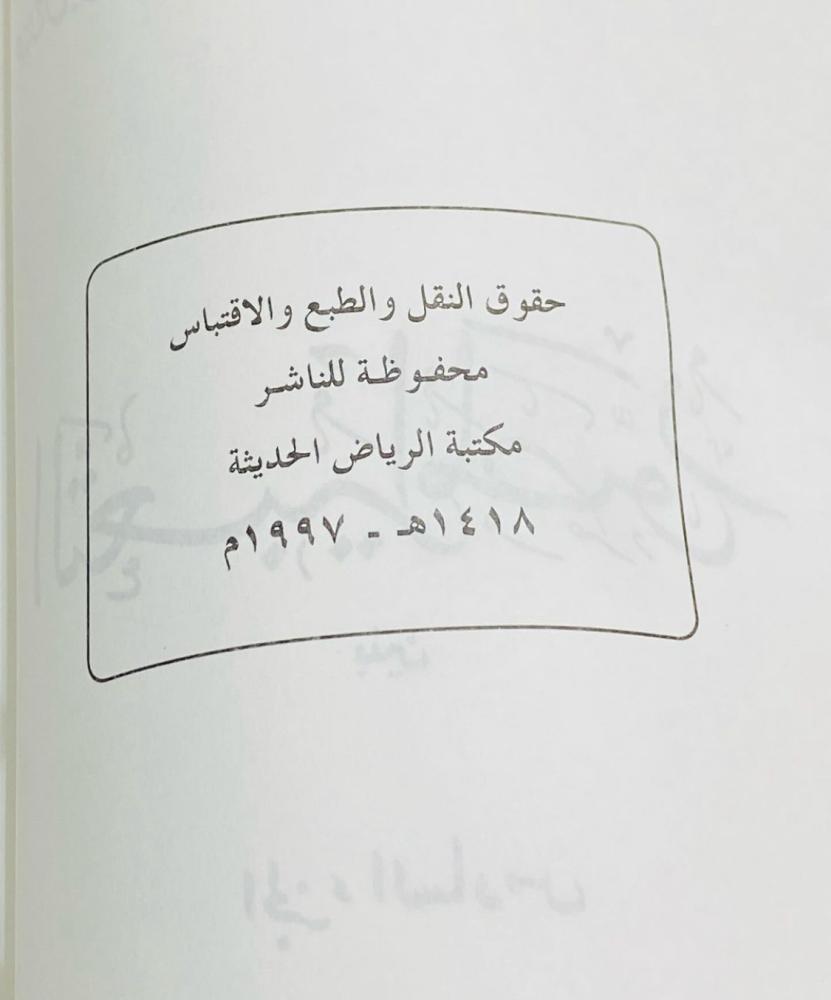 حقوق النقل والطبع والاقتباس
محفوظة للناشر
مكتبة الرياض الحديثة
١٤١٨هـ - ١٩٩٧م
الجزء السادس